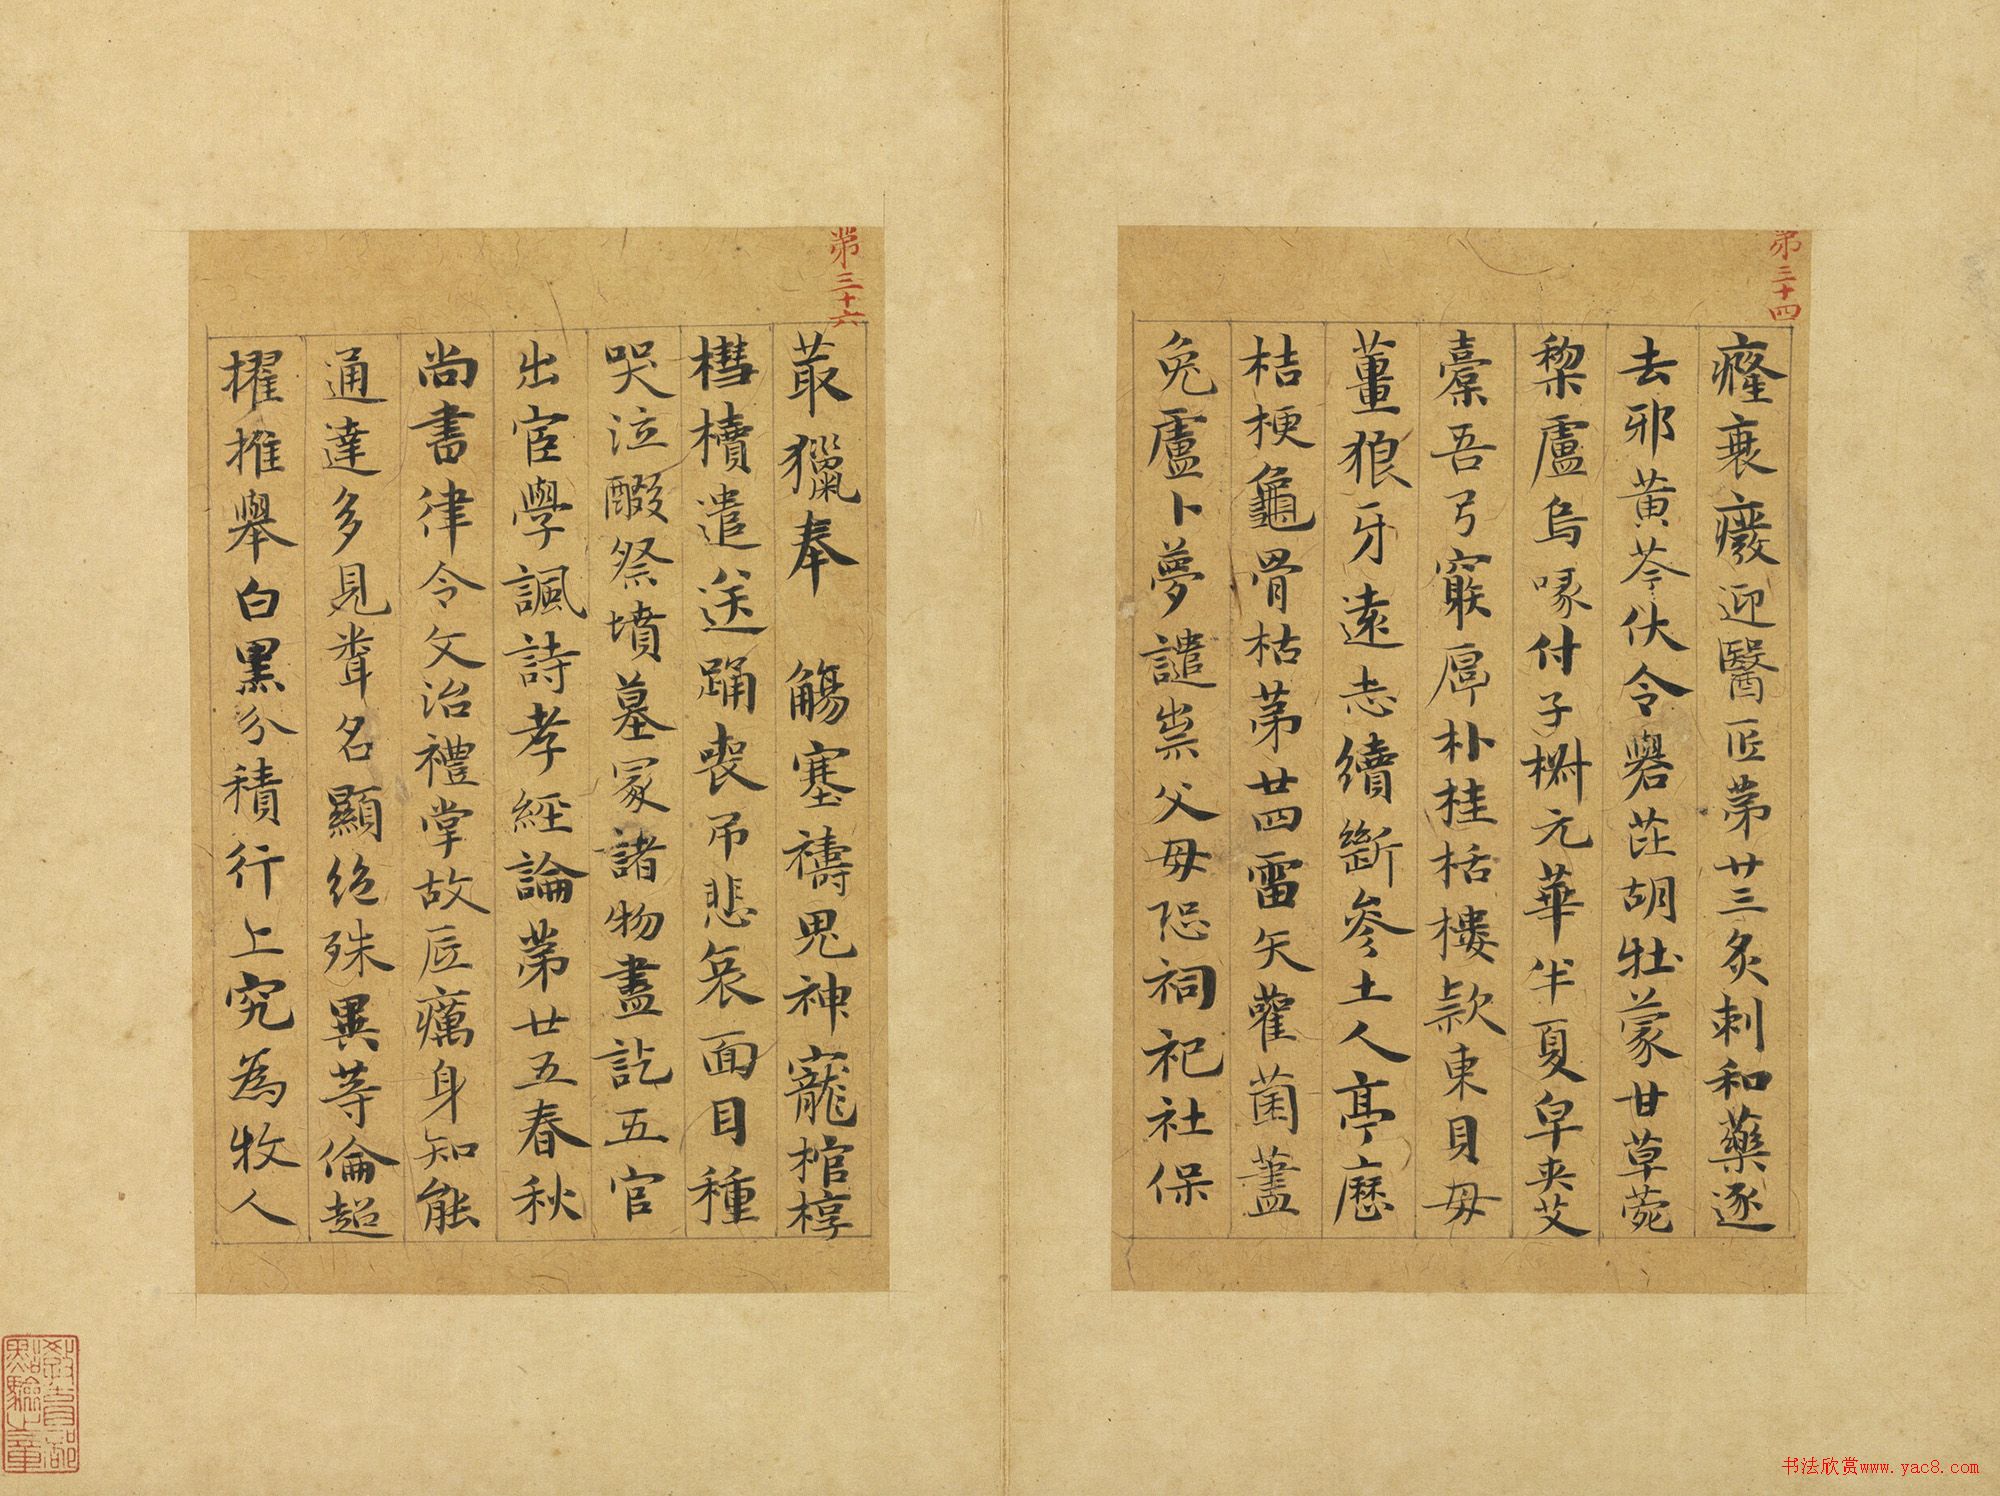 第三十四
癃衰癈迎醫匠第廿三灸刺和藥逐
去邪黃芩伏令礜茈胡牡蒙甘草菀
棃盧烏喙付子椒元華半夏皁夾艾
橐吾弓窮厚朴桂栝樓款東貝母
薑狼牙遠志續斷參土人亭歷
桔梗龜骨枯第廿四雷矢雚菌藎
兔盧卜夢譴祟父母恐祠祀社保
第三十六
菆獵奉 觴塞禱鬼神寵棺槨
槥櫝遣送踊喪弔悲哀面目種
哭泣醊祭墳墓冢諸物盡訖五官
出宦學諷詩孝經論第廿五春秋
尚書律令文治禮掌故匠厲身知能
通達多見聞名顯絕殊異等倫超
擢推舉白黑分積行上究為牧人
教育部
點驗之章
书法欣赏www.yac8.com